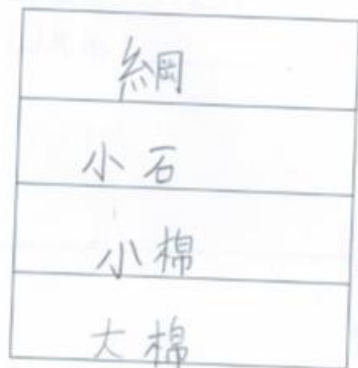 綱
小石
小棉
大棉